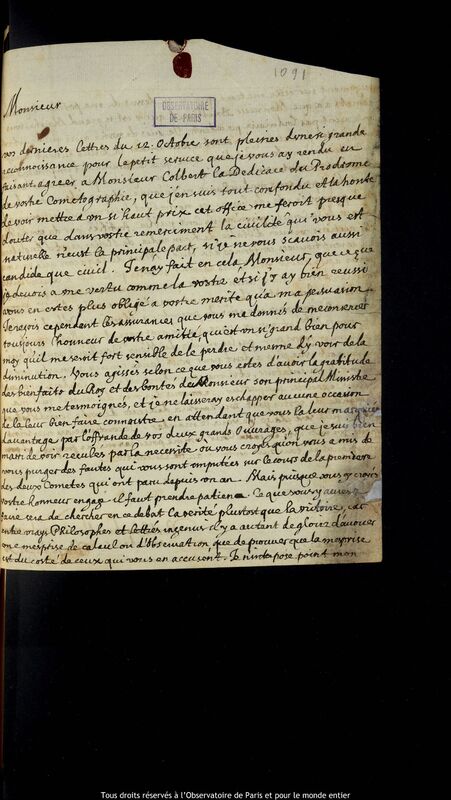 1091
Monsieur
OBSERVATOIRE
DE PARIS
vos dernieres lettres du 12. Octobre sont pleines d'une si grande
reconnoissance pour le petit service que je vous ay rendu en
faisant agreer a Monsieur Colbert la Dedicace du Prodrome
de vostre Cometographie, que j'en suis tout confondu et la honte
de voir mettre a un si haut prix cet office me feroit presque
douter que dans vostre remerciment la civilité qui vous est
naturelle n'eust la principale part, si je ne vous scavois aussi
candide que civil. Je n'ay fait en cela Monsieur, que ce que
je devois a une vertu comme la vostre et si j'y ay bien reussi
vous en estes plus obligé a vostre merite qu'a ma persuasion
Je reçois cependant les assurances que vous me donnés de me conserver
tousjours l'honneur de vostre amitié, qui est un si grand bien pour
moy qu'il me seroit fort sensible de le perdre et mesme d'y voir de la
diminution. Vous agissés selon ce que vous estes d'avoir la gratitude
des bienfaits du Roy et des bontés de Monsieur son principal Ministre
que vous me tesmoignés, et je ne laisseray eschapper aucune occasion
de la leur bien faire connoistre, en attendant que vous la leur marquiés
davantage par l'offrande de vos deux grands Ouvrages, que je suis bien
marri de voir reculés par la necessité ou vous croyés qu'on vous a mis de
vous purger des fautes qui vous sont imputées sur le cours de la premiere
des deux Cometes qui ont paru depuis un an. Mais puisque vous y croyés
vostre honneur engagé il faut prendre patience. Ce que vous y aurés a
faire sera de chercher en ce debat la verité plustost que la victoire, car
entre vrays Philosophes et lettrés ingenus il y a autant de gloire d'avouer
une mesprise de calcul ou d'observation que de prouver que la mesprise
est du costé de ceux qui vous en accusent. Je n'interpose point mon
Tous droits réservés à l'Observatoire de Paris et pour le monde entier